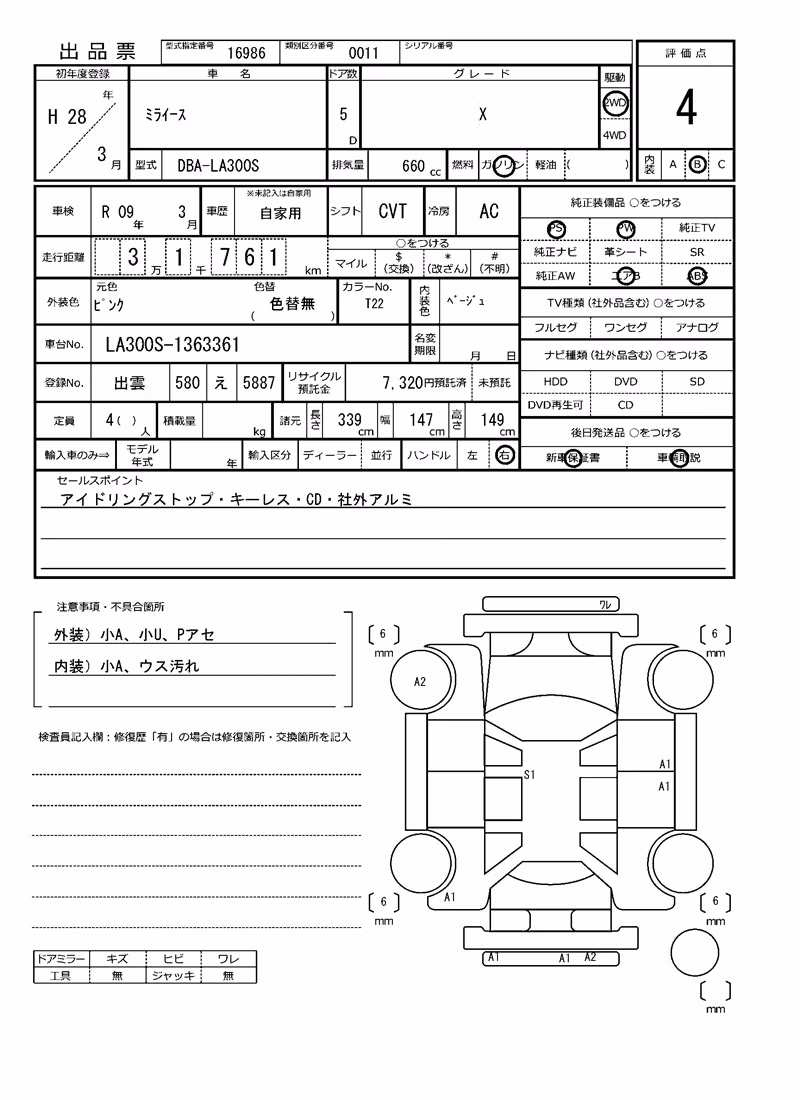 出品票 型式指定番号 16986 類別区分番号 0011 シリアル番号
評価点
初年度登録 車名 ドア数 グレード 駆動
H 28 年 3 月 ﾐﾗｲｰｽ 5 D X 2WD 4WD
4
型式 DBA-LA300S 排気量 660 cc 燃料 ガソリン 軽油 ( )
内装 A B C
車検 R 09 年 3 月 車歴 ※未記入は自家用 自家用 シフト CVT 冷房 AC
純正装備品 ○をつける
PS PW 純正TV
純正ナビ 革シート SR
純正AW エアB ABS
走行距離 3 万 1 千 7 6 1 km
○をつける
マイル $ (交換) * (改ざん) # (不明)
外装色 元色 ﾋﾟﾝｸ 色替 ( 色替無 ) カラーNo. T22 内装色 ﾍﾞｰｼﾞｭ
TV種類 (社外品含む) ○をつける
フルセグ ワンセグ アナログ
車台No. LA300S-1363361 名変期限 月 日
ナビ種類 (社外品含む) ○をつける
HDD DVD SD
DVD再生可 CD
登録No. 出雲 580 え 5887 リサイクル預託金 7,320円預託済 未預託
定員 4 ( ) 人 積載量 kg 諸元 長さ 339 cm 幅 147 cm 高さ 149 cm
後日発送品 ○をつける
新車保証書 車輌取説
輸入車のみ⇒ モデル年式 年 輸入区分 ディーラー 並行 ハンドル 左 右
セールスポイント
アイドリングストップ・キーレス・CD・社外アルミ
注意事項・不具合箇所
外装) 小A、小U、Pアセ
内装) 小A、ウス汚れ
検査員記入欄：修復歴「有」の場合は修復箇所・交換箇所を記入
ﾜﾚ
6 mm
6 mm
A2
A1
S1
A1
A1
6 mm
6 mm
A1 A1 A2
mm
ドアミラー キズ ヒビ ワレ
工具 無 ジャッキ 無